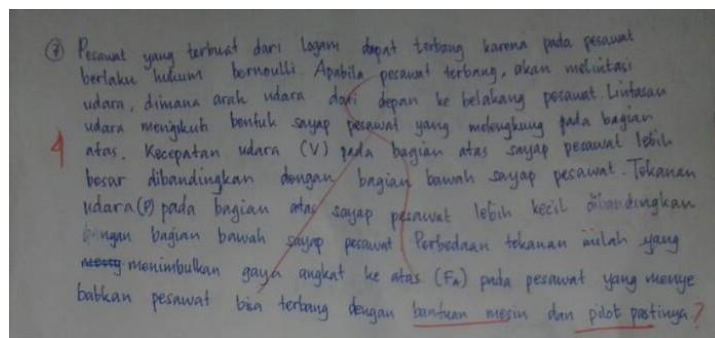 7 Pesawat yang terbuat dari logam dapat terbang karena pada pesawat
berlaku hukum bernoulli. Apabila pesawat terbang, akan melintasi
udara, dimana arah udara dari depan ke belakang pesawat. Lintasan
udara mengikuti bentuk sayap pesawat yang melengkung pada bagian
4 atas. Kecepatan udara (V) pada bagian atas sayap pesawat lebih
besar dibandingkan dengan bagian bawah sayap pesawat. Tekanan
udara (P) pada bagian atas sayap pesawat lebih kecil dibandingkan
dengan bagian bawah sayap pesawat. Perbedaan tekanan inilah yang
menimbulkan gaya angkat ke atas (FA) pada pesawat yang menye
babkan pesawat bisa terbang dengan bantuan mesin dan pilot pastinya?